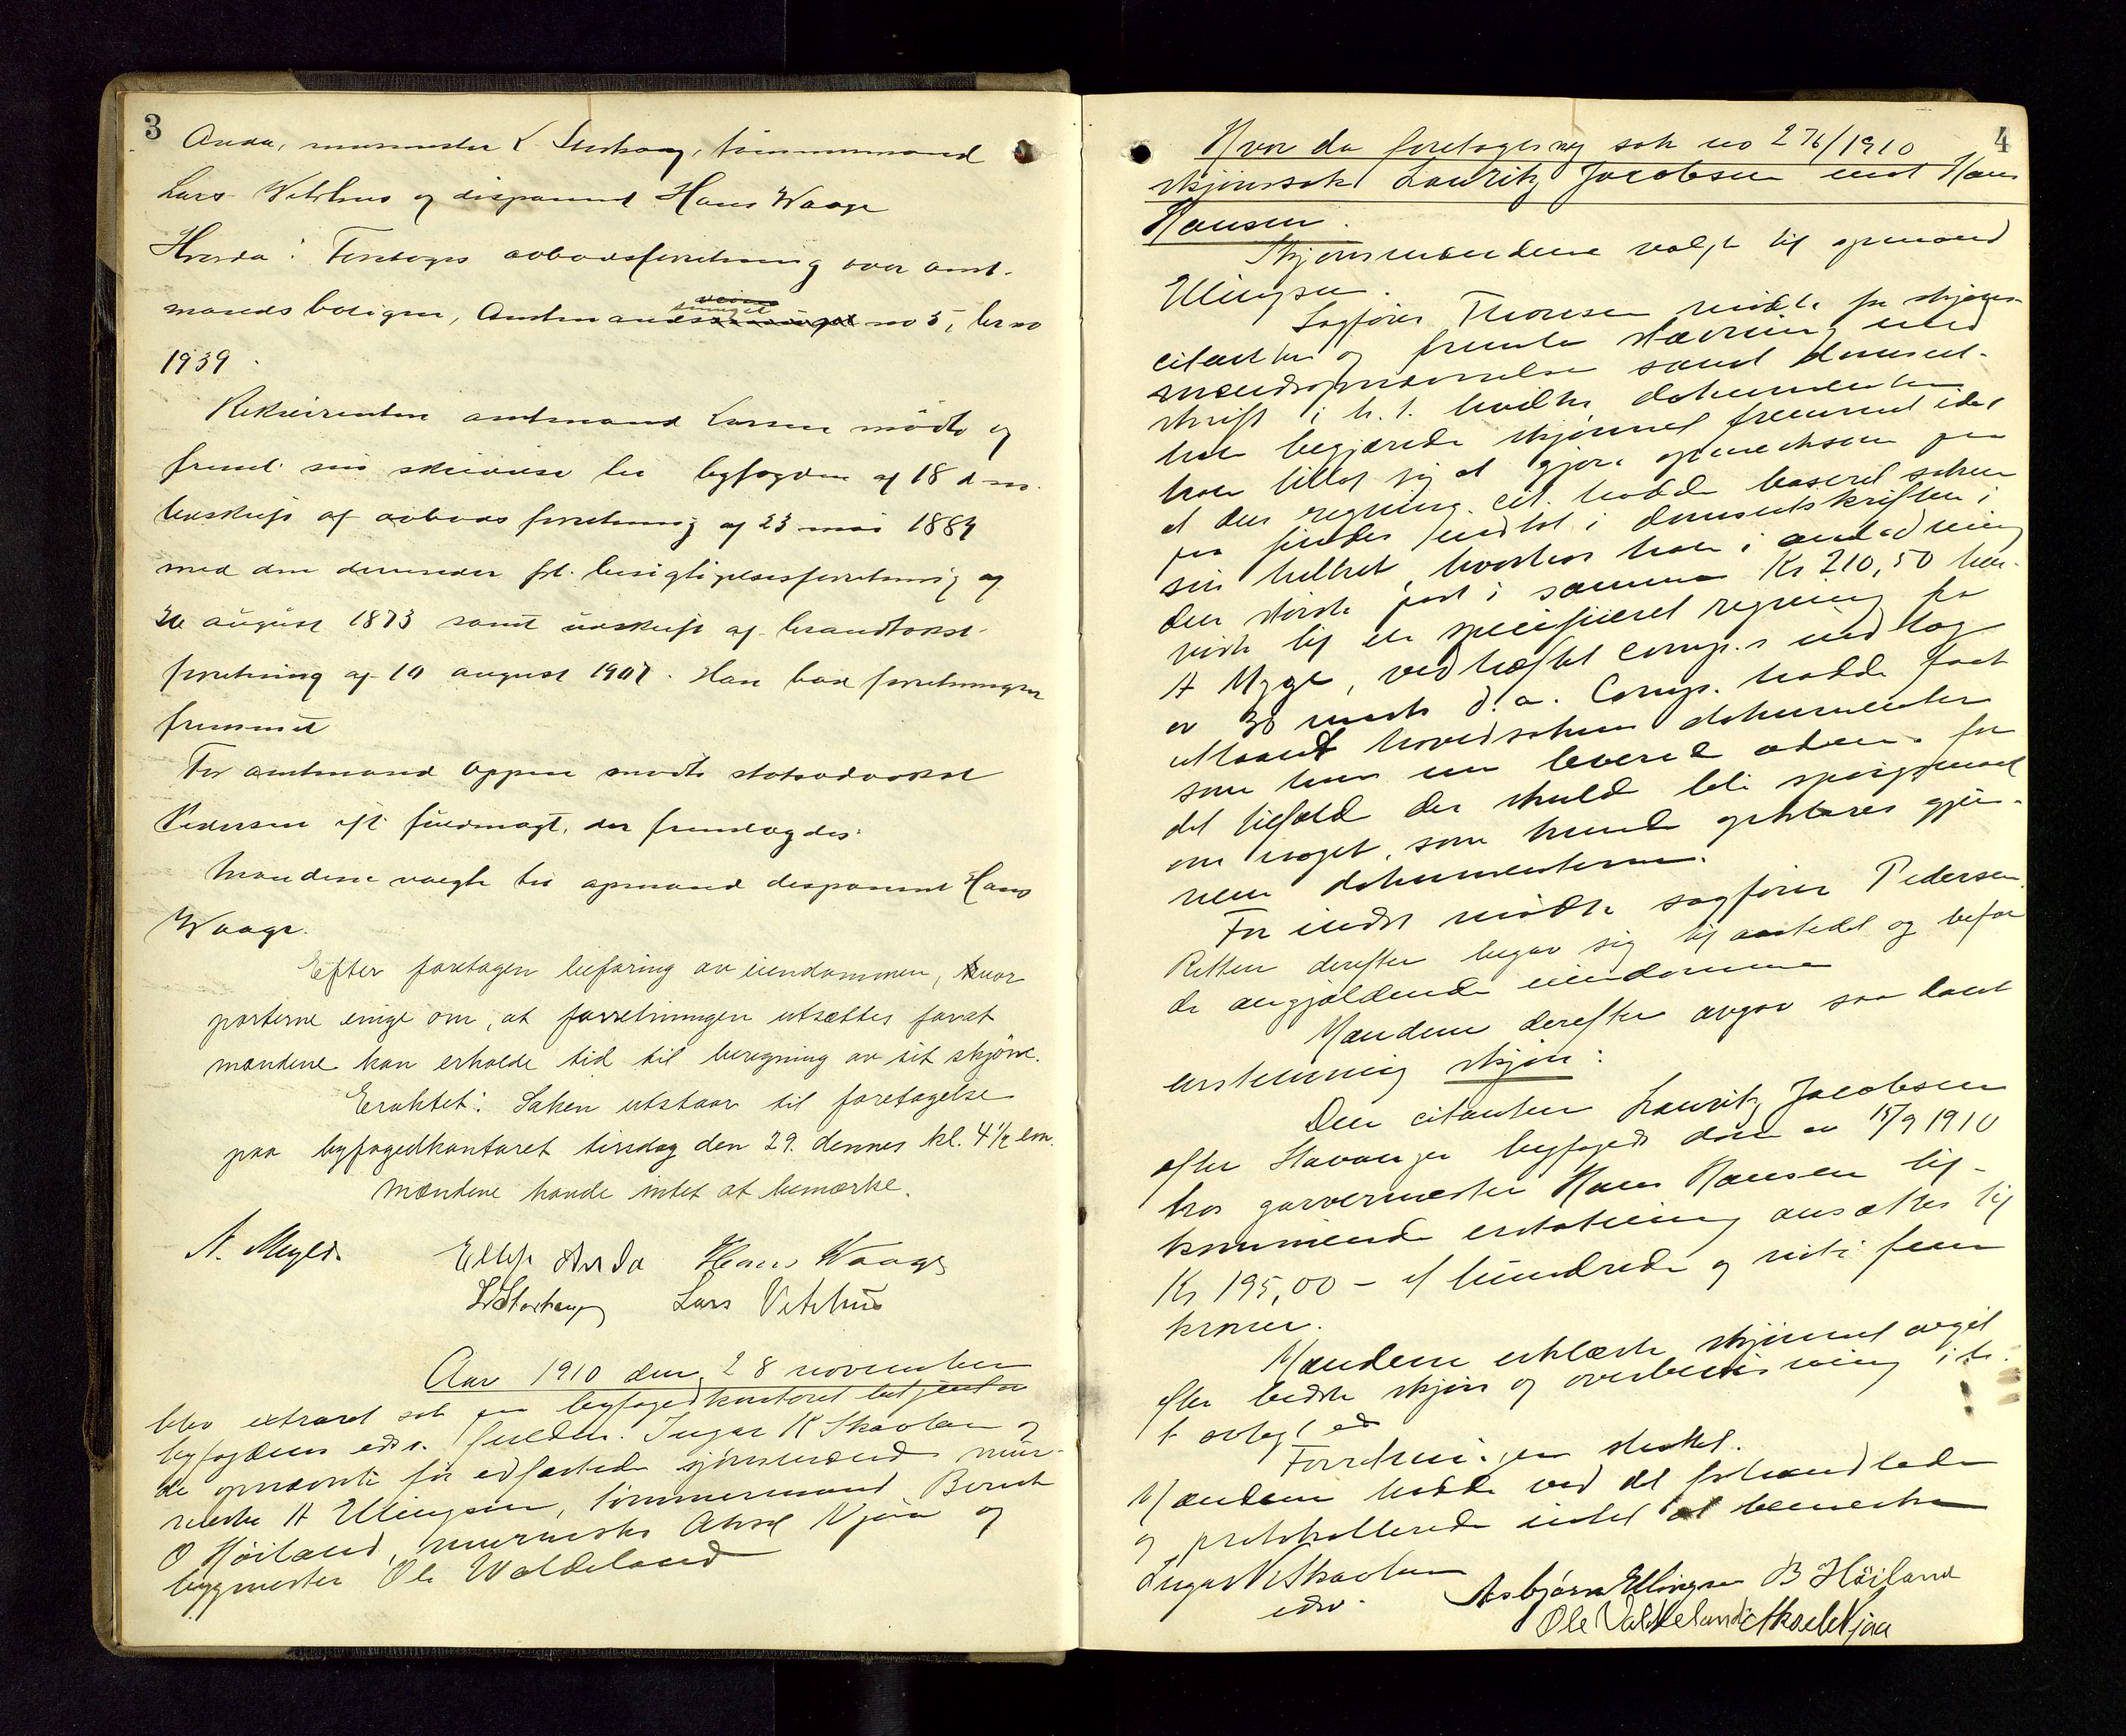 3
Anda, murmester L Storhaug, tømmermand
Lars Vetrhus og disponent Hans Waage
Hvorda: Foretoges aabodsforretning over amt-
mandsboligen, Amtmand no 5, br no
1939.
Rekvirenten amtmand Larsen mødte og
freml. sin skrivelse til byfogden af 18 d m.
utskrift af aabodsforretning af 23 mai 1884
med den derunder frt. besigtigelsesforretning af
august 1873 samt utskrift af brandtakst-
forretning af 10 august 1907. Han bad forretningen
fremmet
For amtmand Oppen mødte statsadvokat
Pedersen ift fuldmagt, der fremlagdes.
Mændene valgte til opmand disponent Hans
Waage.
Efter foretagen befaring av eiendommen, var
parterne enige om, at forretningen utsættes forat
mændene kan erholde tid til beregning av sit skjøn.
Eraktet: Saken utstaar til foretagelse
paa byfogedkontoret tirsdag den 29. dennes kl. 4 1/2 em.
Mændene havde intet at bemærke.
A. Meyer.
Ellef Anda Hans Waage
L Storhaug Lars Vetrhus
Aar 1910 den 28 november
blev extraret sat paa byfogedkontoret betjent av
byfogdens edsv. fuldm. Ingar K Skavlan og
de opnævnte før edfæstede skjønsmænd mur-
mester A Ellingsen, tømmermand Bernt
O Høiland, murmester Aksel Njaa og
bygmester Ole Waldeland
4
Hvor da foretoges sak no 276/1910
skjønssak Lauritz Jacobsen mot Hans
Hansen.
Skjønsmændene valgte til opmand
Ellingsen.
Sagfører Thorsen mødte for skjøns-
citanten og fremla stævning med
mændsopnævnelse samt domsut-
skrift i h. t. hvilke dokumenter
han begjærede skjønnet fremmet idet
han tillot sig at gjøre opmerksom paa
at den regning cit. hadde baseret saken
paa findes indtat i domsutskriften i
sin helhet, hvorhos han i anledning
den største post i samme Kr 210,50 hen-
viste til en specificeret regning fra
A Mygge, vedhæftet comp.s indlæg
av 30 marts d. a. Comp. hadde faat
utlaant hovedsakens dokumenter
som han nu leverte adm. for
det tilfælde der skulde bli spørgsmaal
om noget, som kunde opklares gjen-
nem dokumenterne.
For indst. mødte sagfører Pedersen.
Retten derefter begav sig til aastedet og befor
de angjældende eiendomme
Mændene derefter avgav saa dant
enstemmig skjøn:
Den citanten Lauritz Jacobsen
efter Stavanger byfogeds dom av 15/9 1910
hos garvermester Hans Hansen til-
kommende erstatning ansættes til
Kr 195,00 – et hundrede og nitti fem
kroner.
Mændene erklærte skjønnet avgit
efter bedste skjøn og overbevisning i h.
t. avlagt ed
Forretningen sluttet.
Mændene hadde ved det forhandlede
og protokollerede intet at bemerke
Ingar K Skavlan
edsv.
Asbjørn Ellingsen B Höiland
Ole Valdeland Aksel Njaa